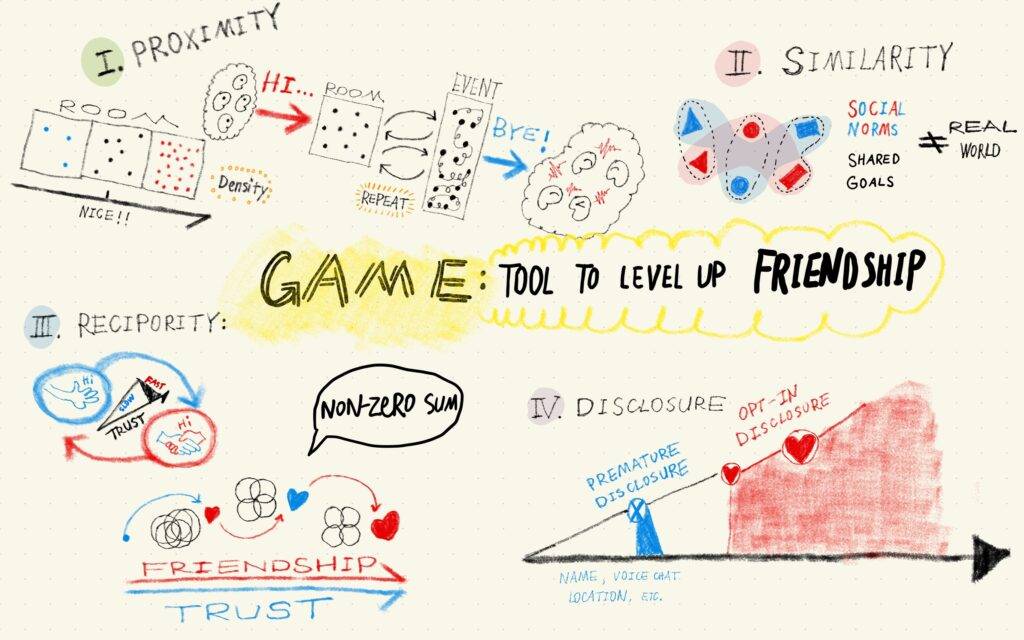 I. PROXIMITY
ROOM
NICE!!
Density
HI...
ROOM
REPEAT
EVENT
BYE!
II. SIMILARITY
SOCIAL
NORMS
SHARED
GOALS
≠
REAL
WORLD
GAME: TOOL TO LEVEL UP FRIENDSHIP
III. RECIPORITY:
Hi
SLOW
FAST
TRUST
Hi
NON-ZERO SUM
FRIENDSHIP
TRUST
IV. DISCLOSURE
PREMATURE
DISCLOSURE
OPT-IN
DISCLOSURE
NAME, VOICE CHAT
LOCATION, ETC.